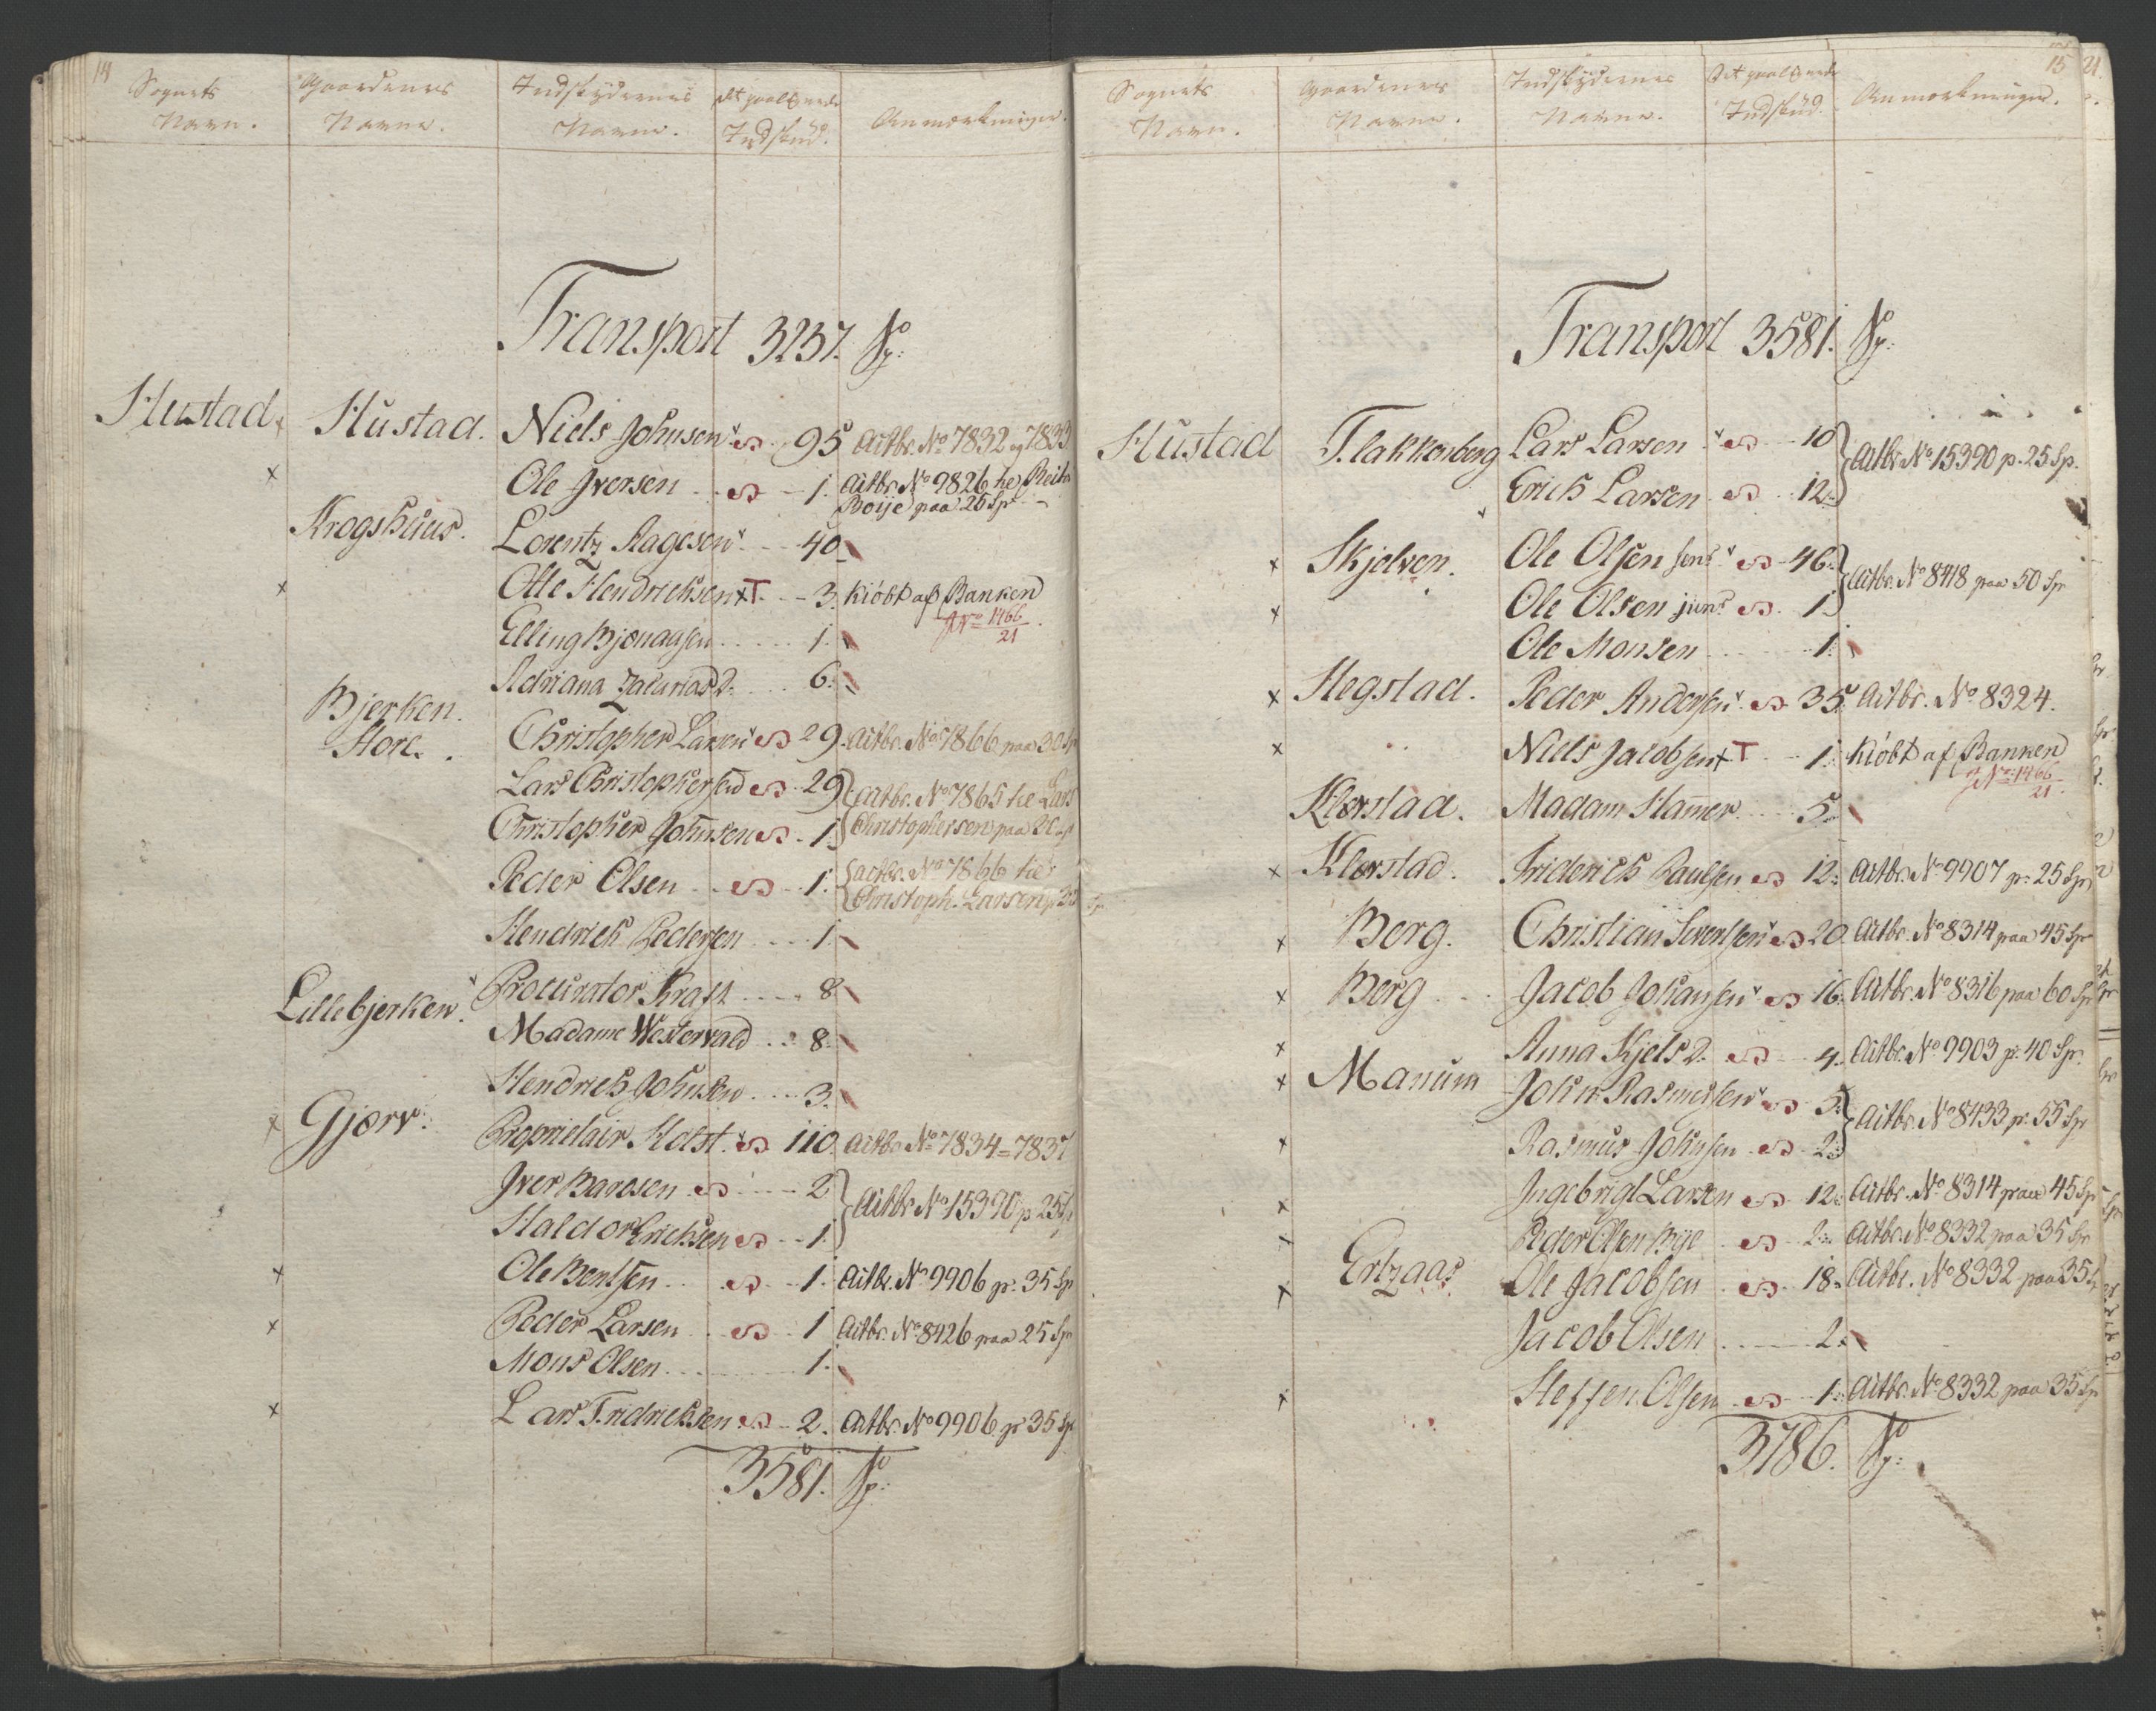 14
Sognets Navn. Gaardenes Navne. Indskydernes Navne. det paalignede Indskud. Anmærkninger.
Transport 3237. Sp:
Hustad Hustad. Niels Johnsen 95 Actbr. No 7832 og 7833
Ole Iversen 1. Actbr. No 9826
Boije paa 25 Sp
Krogshuus. Lorentz Aagesen 40
Otte Hendrichsen T 3. kiöbt af Banken
No 1466/21
Elling Bjönaasen 1.
Adriana Zacarias D. 6.
Bjerken Store. Christopher Larsen 29. Actbr. No 7866 paa 30 Sp
Lars Christophersen 29 Actbr. No 7865 he Lars
Christopher Johnsen 1. Christophersen paa
Peder Olsen 1. Actbr. No 7866 he
Christoph. Larsen p
Hendrich Pedersen 1.
Lillebjerken. Procurator Kraft 8
Madame Westervald 8.
Hendrich Johnsen 3.
Gjörv. Proprietair Holst 110. Actbr. No 7834=7837
Iver Barosen 2
Actbr. No 15390 p 25 Sp
Haldor Erichsen 1.
Ole Bentsen 1. Actbr. No 9906 p: 35 Sp
Peder Larsen 1 Actbr. No 8426 paa 25 Sp
Mons Olsen 1.
Lars Fridrichsen 2. Actbr. No 9906 p 35 Sp
3581. Sp:
15
21.
Sognets Navn. Gaardenes Navne. Indskydernes Navne. Det paalignede Indskud. Anmærkninger.
Transport 3581. Sp:
Hustad Flakkenberg Lars Larsen 10
Actbr No 15390 p. 25 Sp.
Erich Larsen 12.
Skjelven. Ole Olsen sen: 46.
Actbr. No 8418 paa 50 Sp
Ole Olsen jun: 1.
Ole Monsen 1.
Hegstad. Peder Andersen 35. Actbr. No 8324.
Niels Jacobsen T 1. kiöbt af Banken
No 1466/21
Klærstad. Madam Hamer 5.
Klærstad. Friderich Paulsen 12. Actbr. No 9907 p: 25 Sp
Berg. Christian Svendsen 20. Actbr. No 8314 paa 45 Sp
Berg Jacob Johansen 16. Actbr. No 8316 paa 60 Sp
Anna Kjels D. 4. Actbr. No 9903 p: 40 Sp.
Manum John Rasmussen 5.
Actbr. No 8433 p: 55 Sp
Rasmus Johnsen 2.
Ingebrigt Larsen 12. Actbr. No 8314 paa 45 Sp
Peder Olsen Bye 2. Actbr. No 8332 paa 35 Sp
Ertzaas Ole Jacobsen 18. Actbr. No 8332 paa 35 Sp
Jacob Olsen 2.
Steffen Olsen 1. Actbr. No 8332 paa 35 Sp
3786. Sp: